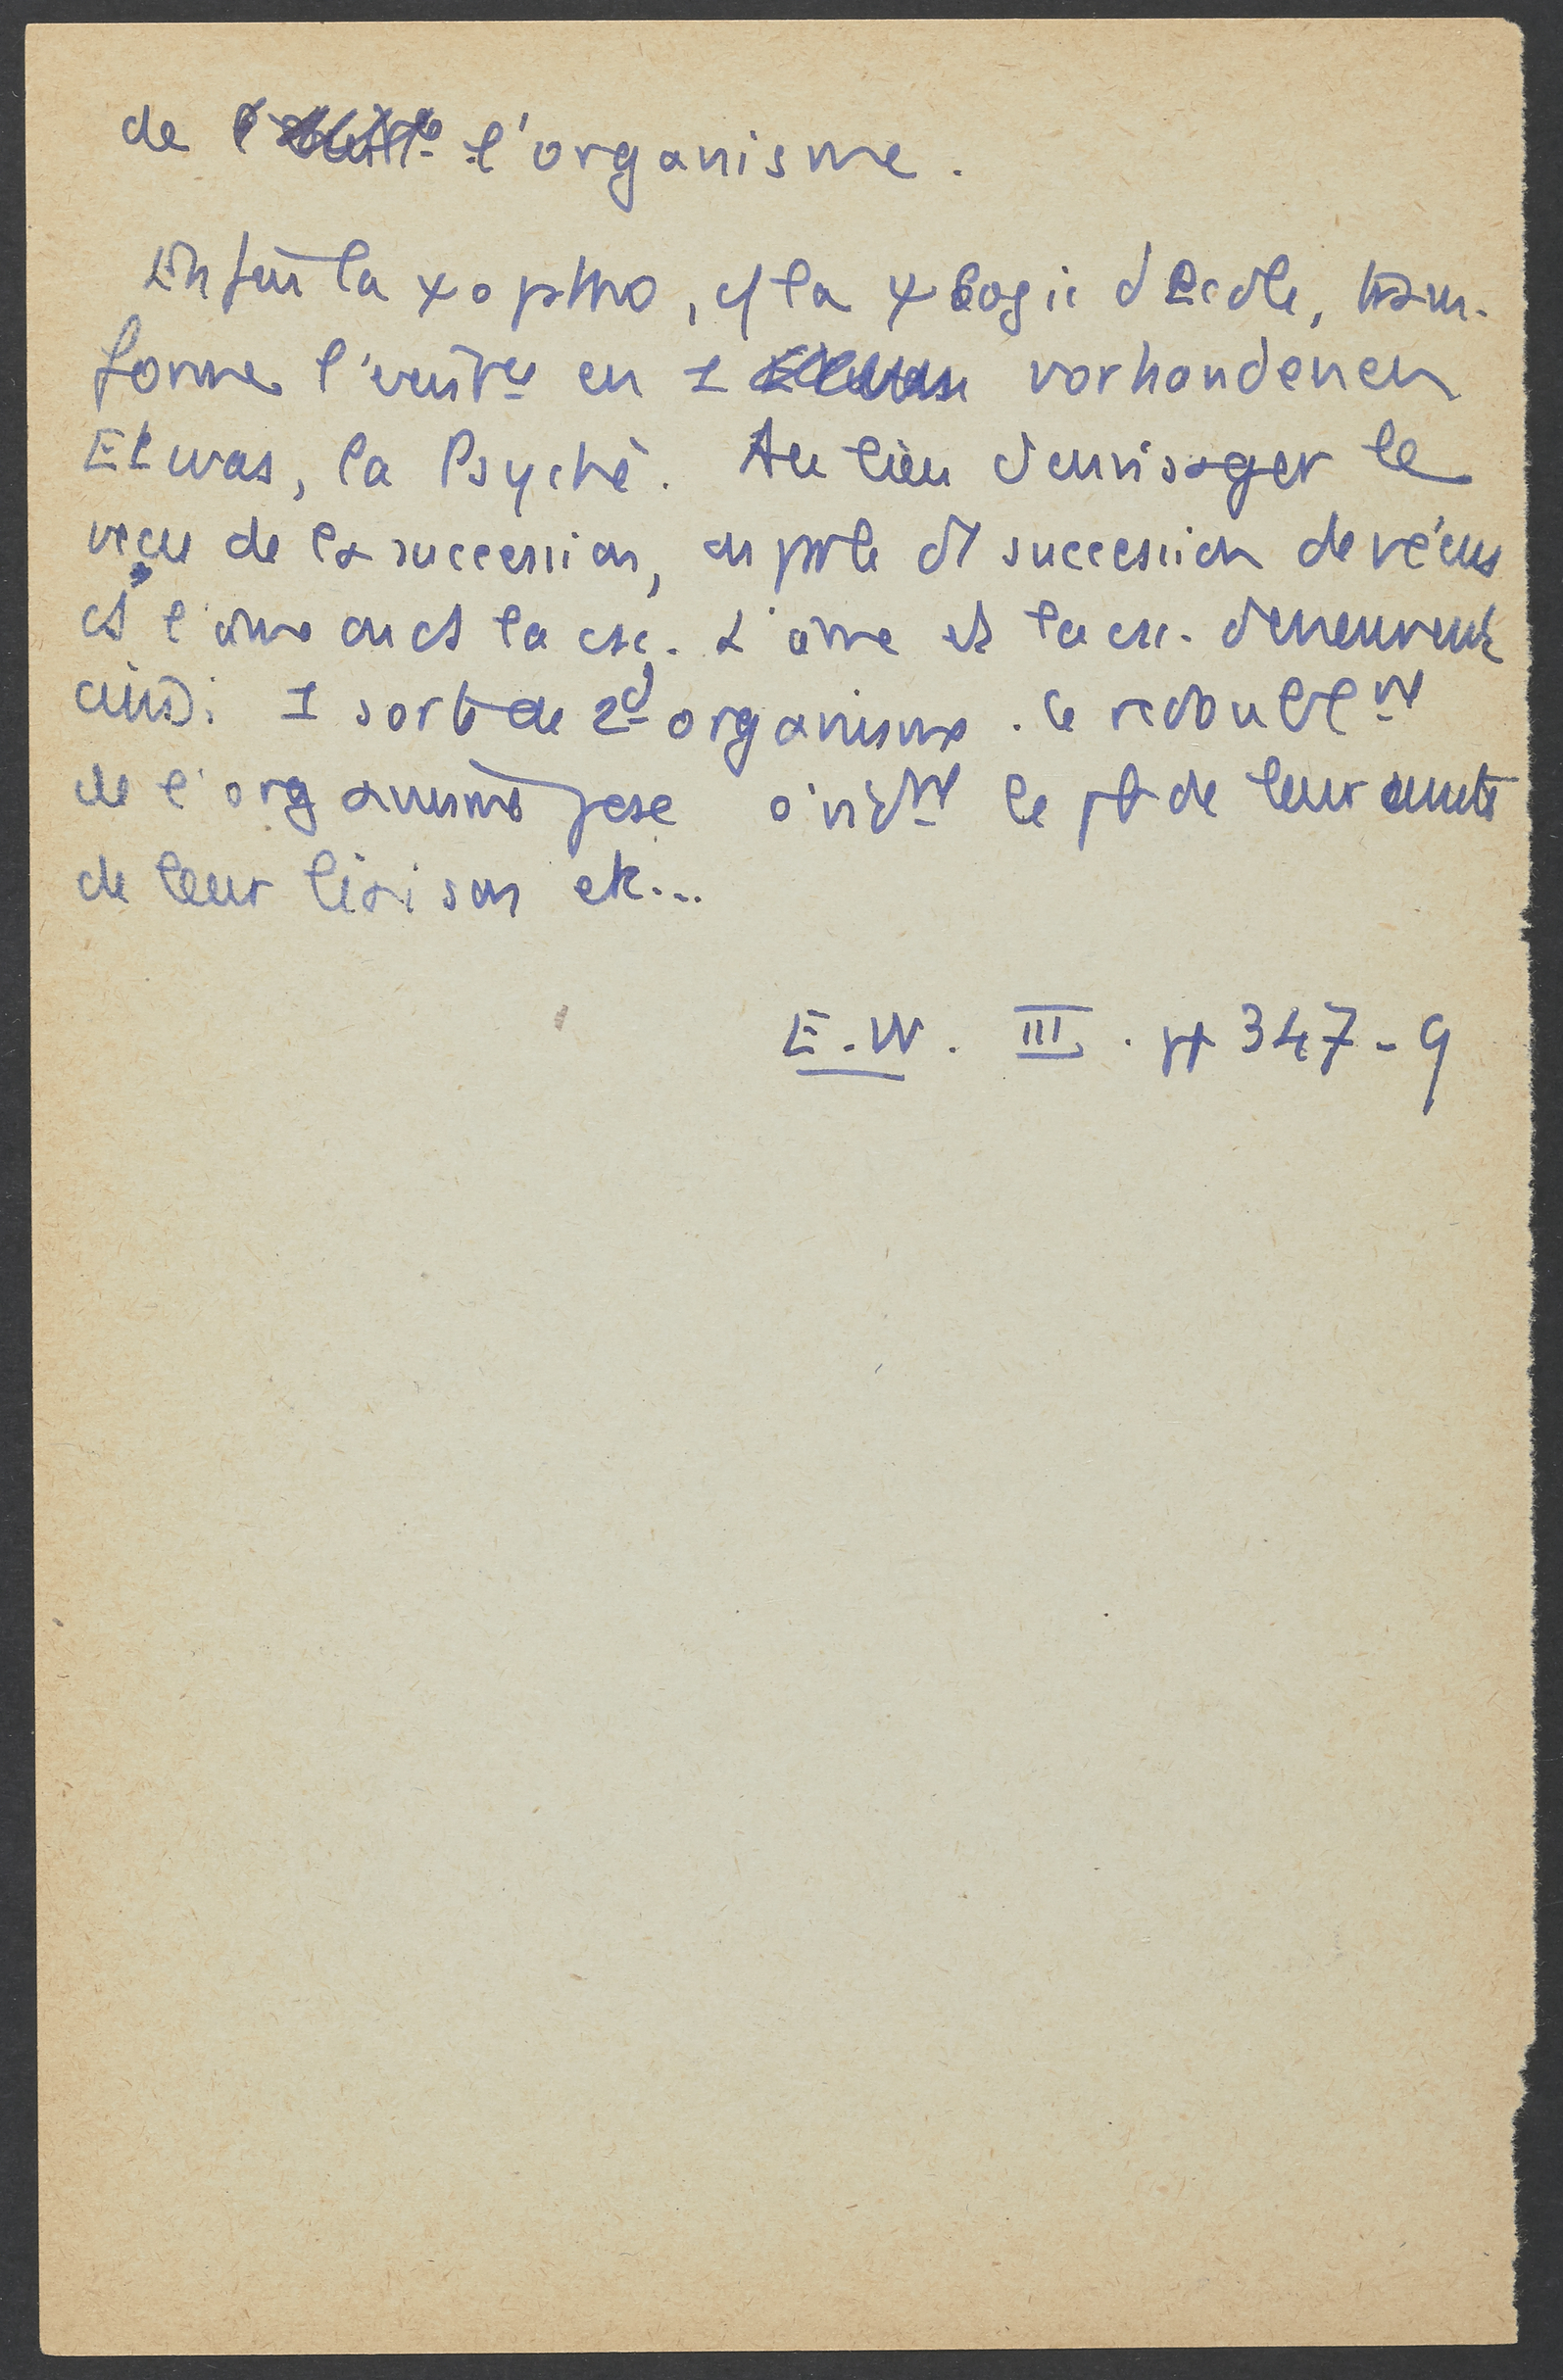 de l'organisme.
Enfin la ψoptho, cf la ψlogie d'Ecole, trans-
forme l'existce en 1 vorhandenen
Etwas, la Psyché. Au lieu d'envisager le
vécu de la succession, on parle d'1 succession de vécus
ds l'âme ou ds la csc. L'âme et la csc. demeurent
ainsi 1 sorte de 2d organisme. Ce redoublemt
de l'organisme pose évidmt le pb de leur unité
de leur liaison etc...
E.W. III. pp 347-9